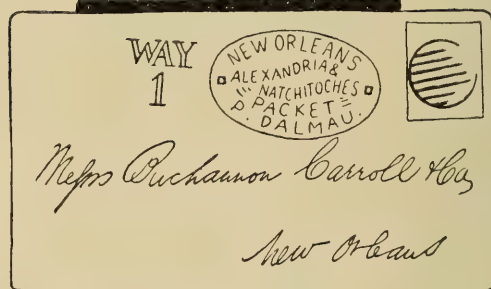 WAY
1
NEW ORLEANS
ALEXANDRIA &
NATCHITOCHES
PACKET
P. DALMAU.
Messs Buchannon Carroll & Co,
New Orleans